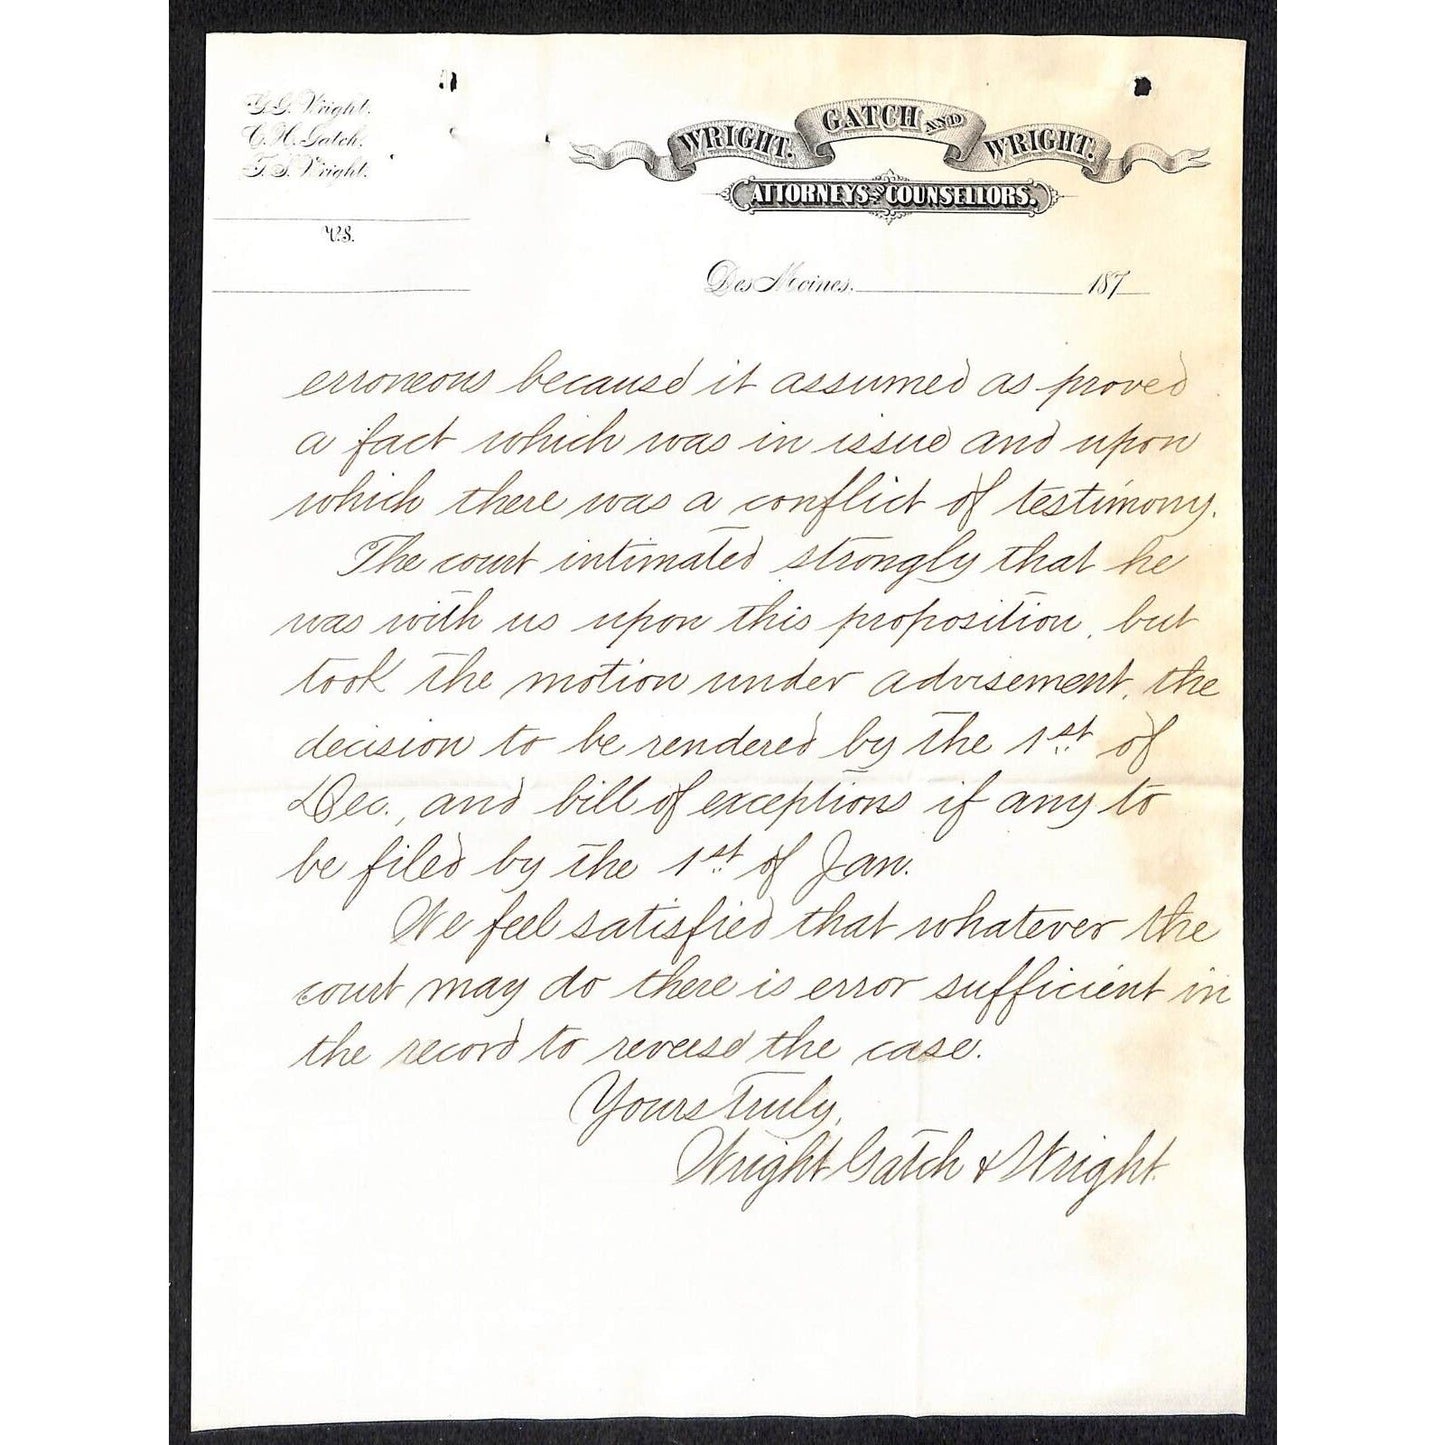 G.G. Wright.
C.H. Gatch.
T.S. Wright.
VS.
WRIGHT, GATCH AND WRIGHT.
ATTORNEYS AND COUNSELLORS.
Des Moines. 187
erroneous because it assumed as proved
a fact which was in issue and upon
which there was a conflict of testimony.
The court intimated strongly that he
was with us upon this proposition, but
took the motion under advisement, the
decision to be rendered by the 1st of
Dec., and bill of exceptions if any to
be filed by the 1st of Jan.
We feel satisfied that whatever the
court may do there is error sufficient in
the record to reverse the case.
Yours truly,
Wright Gatch & Wright.